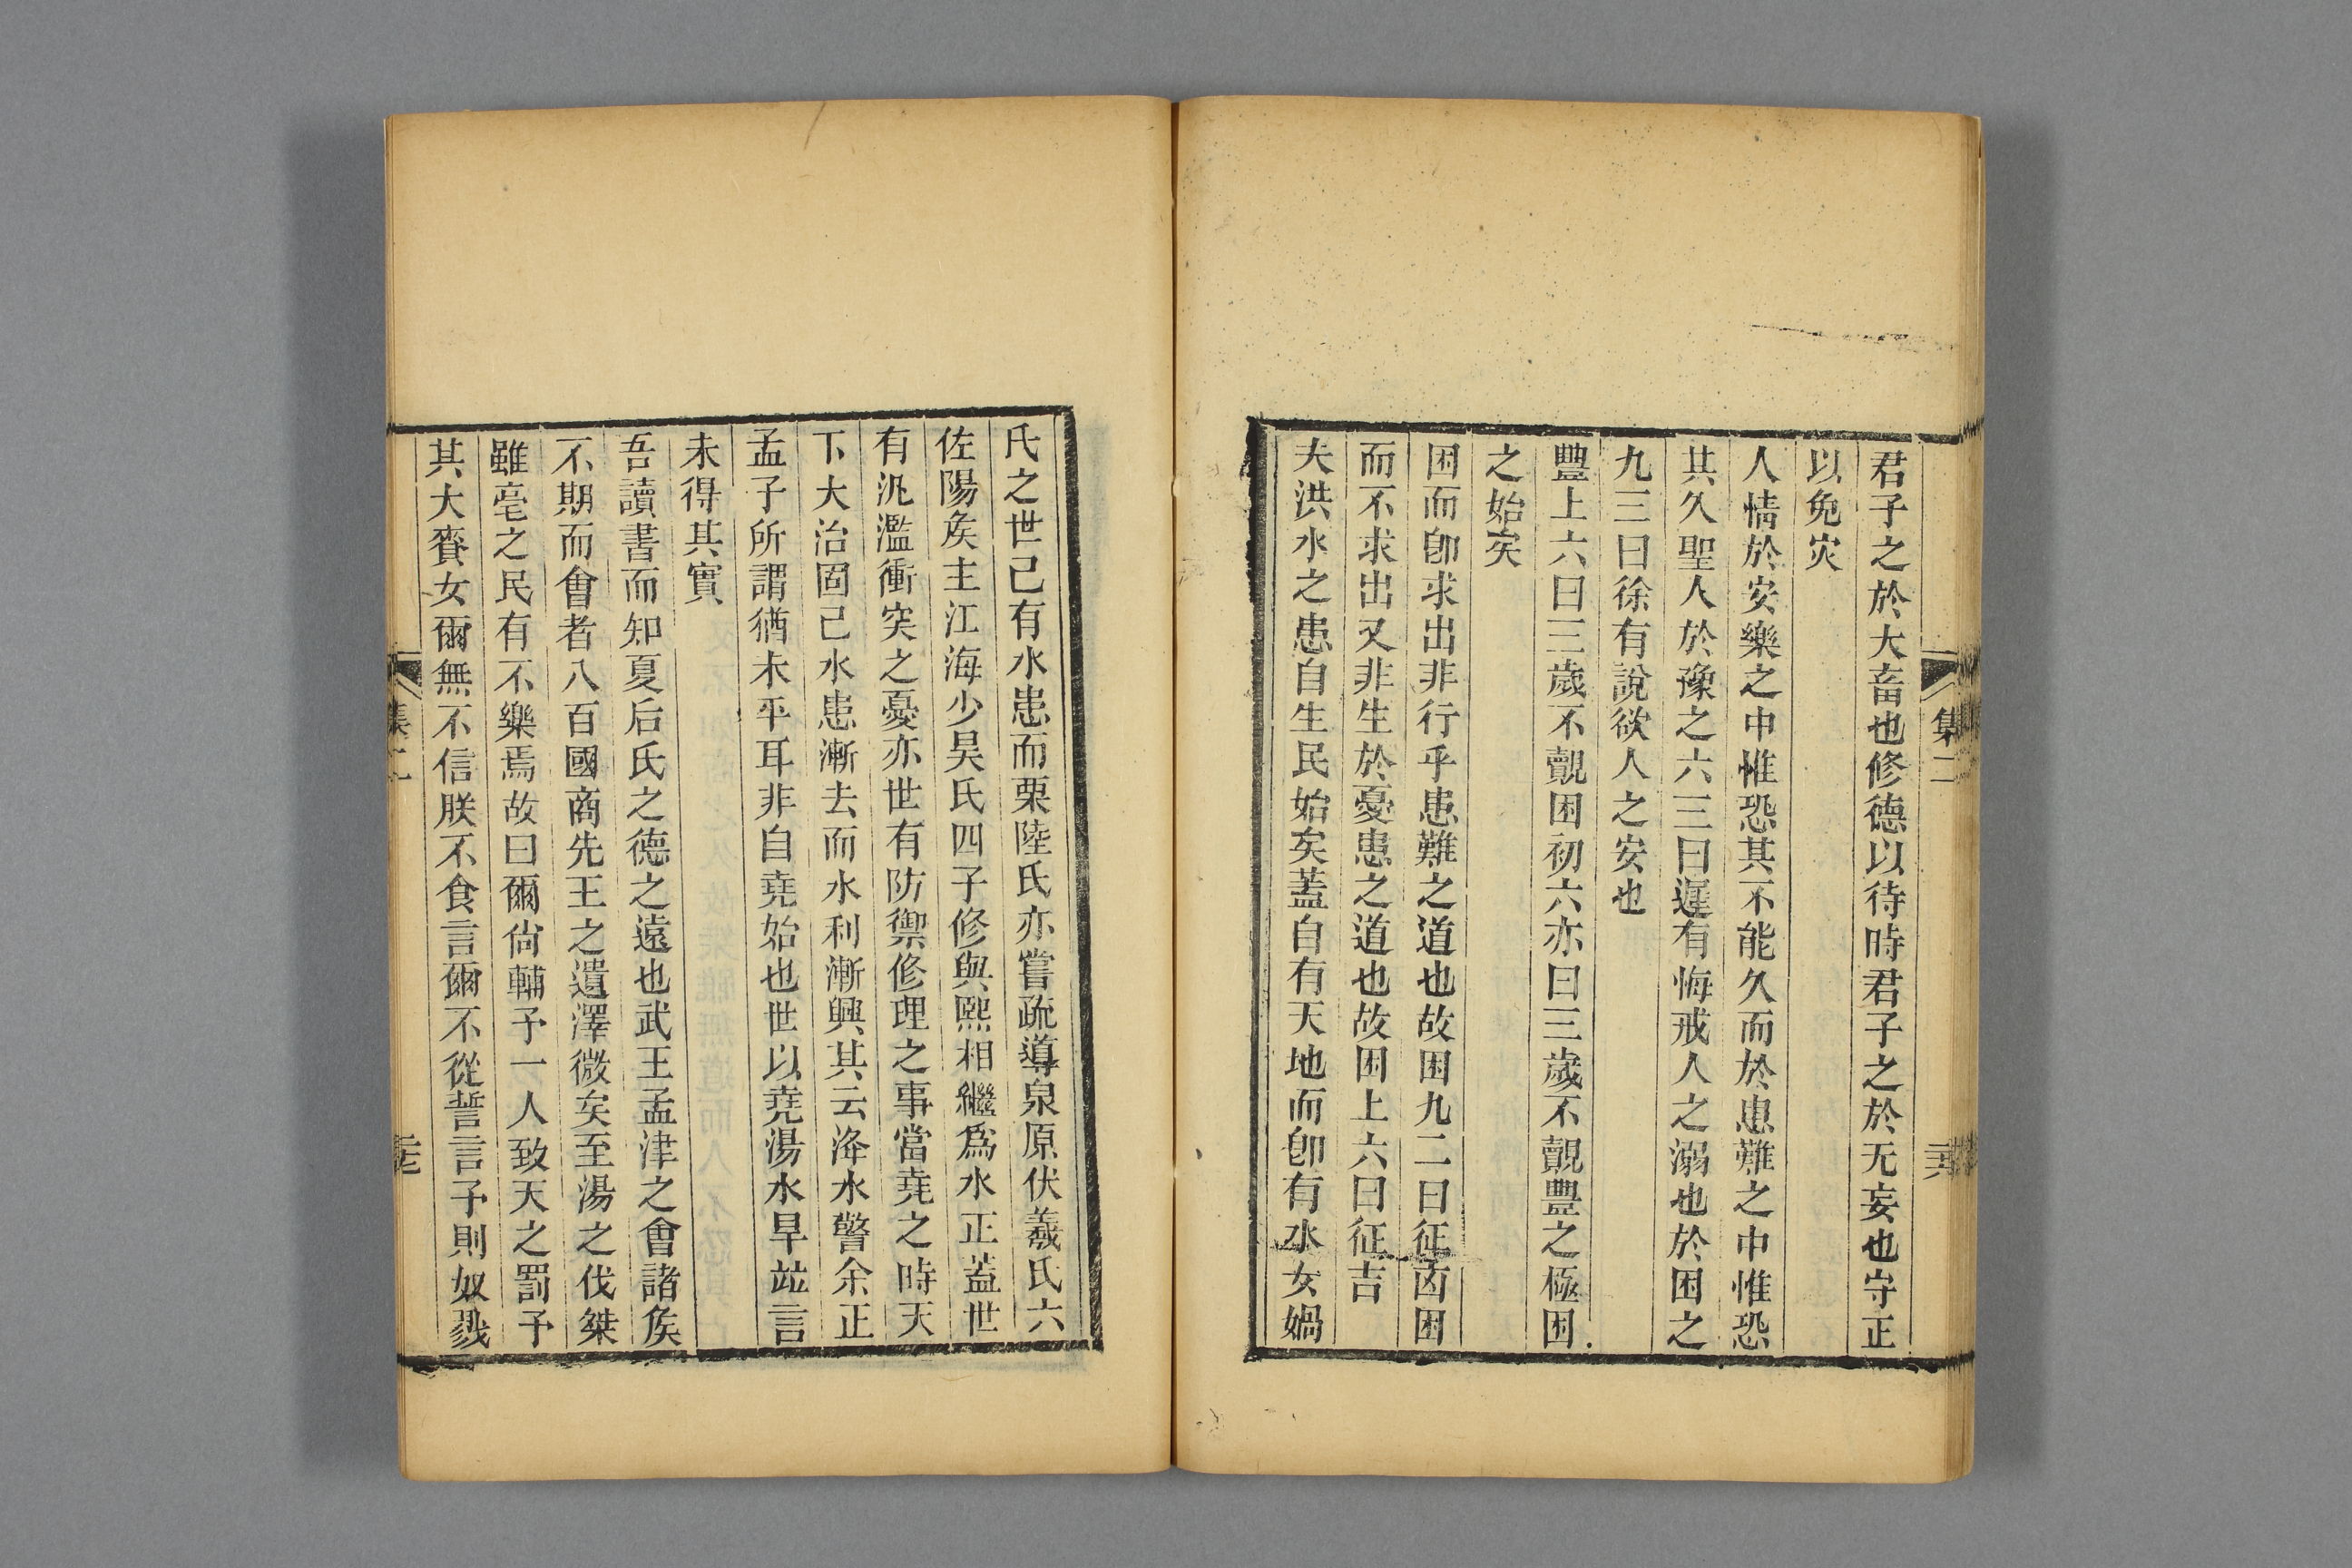 集二
二十六
君子之於大畜也修德以待時君子之於无妄也守正
以免灾
人情於安樂之中惟恐其不能久而於患難之中惟恐
其久聖人於豫之六三曰遲有悔戒人之溺也於困之
九三曰徐有說欲人之安也
豐上六曰三歲不覿困初六亦曰三歲不覿豐之極困
之始矣
困而卽求出非行乎患難之道也故困九二曰征凶困
而不求出又非生於憂患之道也故困上六曰征吉
夫洪水之患自生民始矣蓋自有天地而卽有水女媧
氏之世已有水患而栗陸氏亦嘗疏導泉原伏羲氏六
佐陽矦主江海少昊氏四子修與熙相繼爲水正蓋世
有汎濫衝突之憂亦世有防禦修理之事當堯之時天
下大治固已水患漸去而水利漸興其云洚水警余正
孟子所謂猶未平耳非自堯始也世以堯湯水旱竝言
未得其實
吾讀書而知夏后氏之德之遠也武王孟津之會諸矦
不期而會者八百國商先王之遺澤微矣至湯之伐桀
雖亳之民有不樂焉故曰爾尙輔予一人致天之罰予
其大賚女爾無不信朕不食言爾不從誓言予則奴戮
集二
二十七